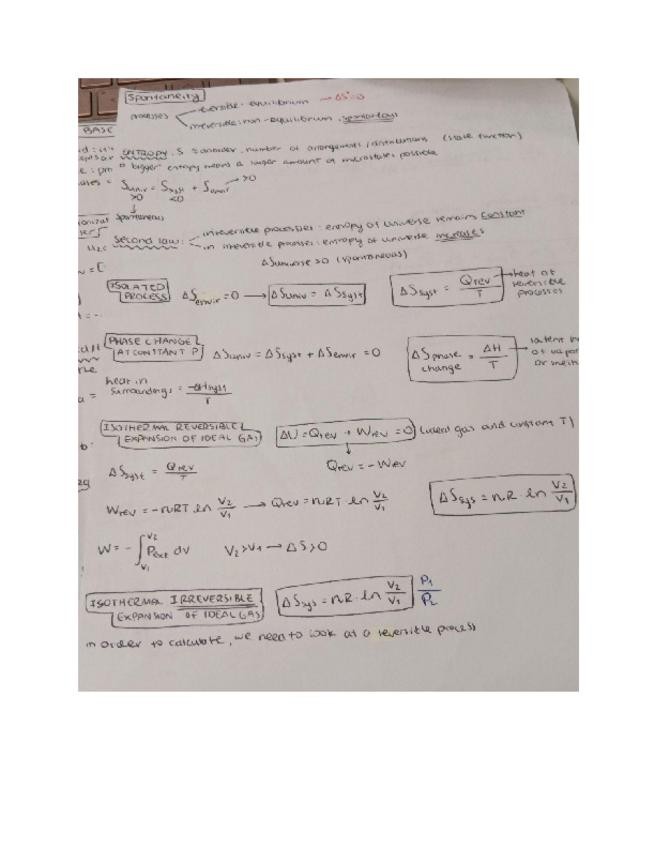 Spontaneity
processes
reversible: equilibrium → ΔS=0
irreversible: non-equilibrium, spontaneous
BASE
ENTROPY, S = disorder, number of arrangements / distributions (state function)
"bigger" entropy means a larger amount of microstates possible
S univ = S syst + S envir → >0
>0 <0
↓
spontaneous
Second law:
irreversible processes: entropy of universe remains constant
in irreversible processes: entropy of universe increases
ΔS universe > 0 (spontaneous)
ISOLATED PROCESS ΔS envir = 0 → ΔS univ = ΔS syst ΔS syst = Q rev / T → heat at reversible processes
PHASE CHANGE AT CONSTANT P ΔS univ = ΔS syst + ΔS envir = 0 ΔS phase change = ΔH / T → latent
heat in surroundings = -ΔH syst / T
ISOTHERMAL REVERSIBLE EXPANSION OF IDEAL GAS ΔU = Q rev + W rev = 0 (ideal gas and constant T)
↓
ΔS syst = Q rev / T Q rev = - W rev
W rev = -nRT ln V2/V1 → Q rev = nRT ln V2/V1 ΔS sys = nR · ln V2/V1
W = - ∫ V1 V2 P ext dV V2 > V1 → ΔS > 0
ISOTHERMAL IRREVERSIBLE EXPANSION OF IDEAL GAS ΔS sys = nR · ln V2/V1 P1/P2
in order to calculate, we need to look at a reversible process